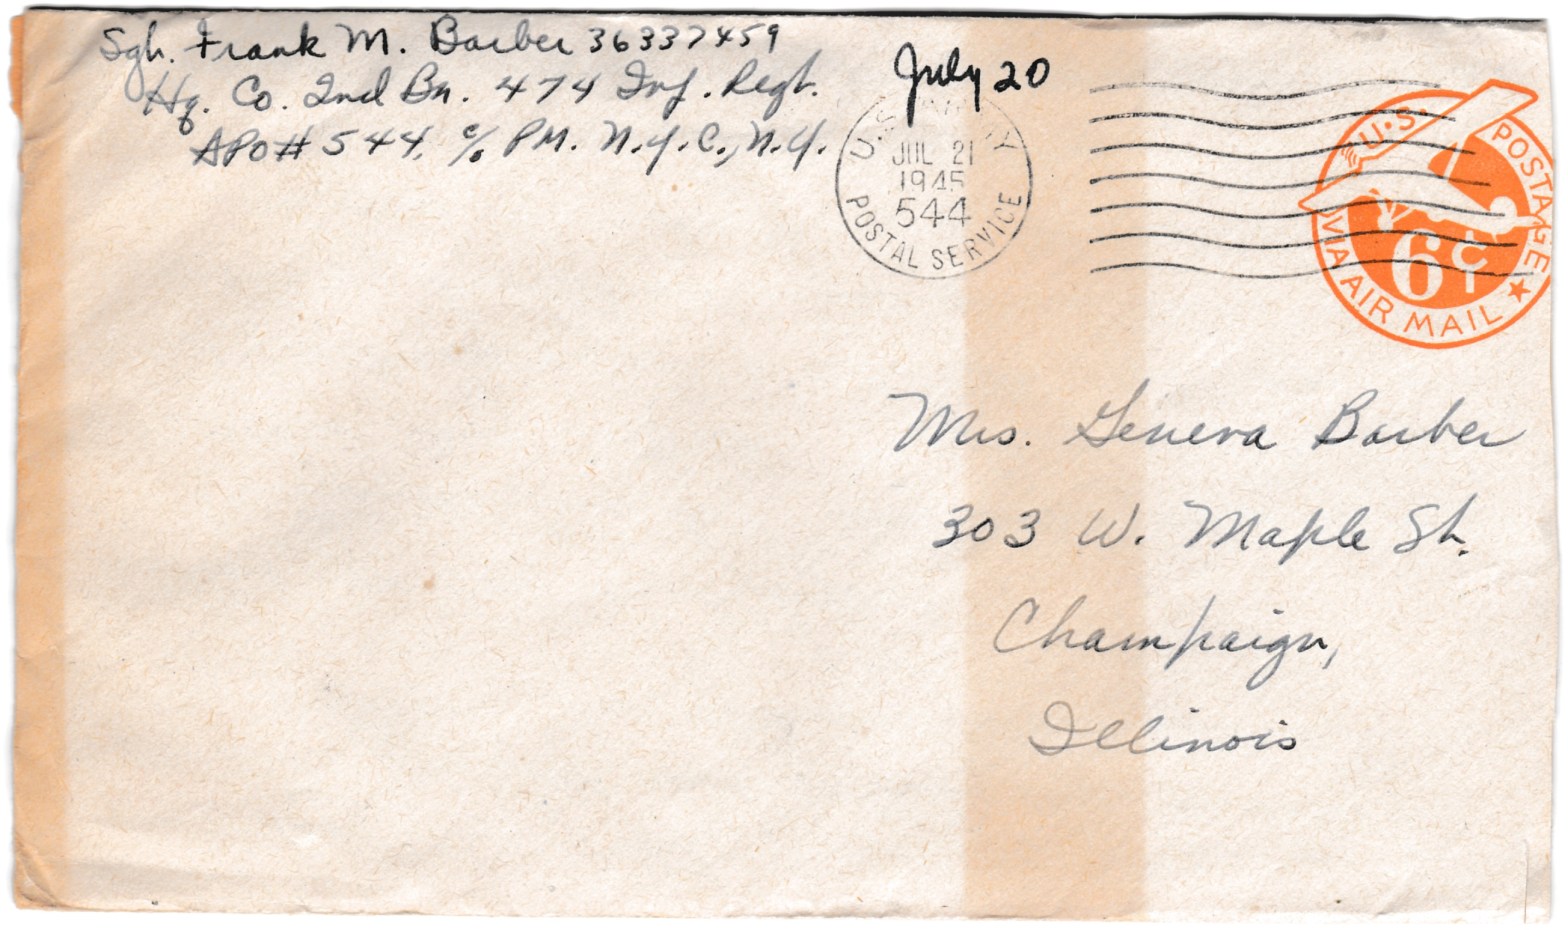 Sgt. Frank M. Barber 36337459
Hq. Co. 2nd Bn. 474 Inf. Regt.
APO# 544, c/o PM. N.Y.C., N.Y.
July 20
U.S. ARMY
JUL 21
1945
544
POSTAL SERVICE
U.S. POSTAGE
6¢
VIA AIR MAIL
Mrs. Geneva Barber
303 W. Maple St.
Champaign,
Illinois